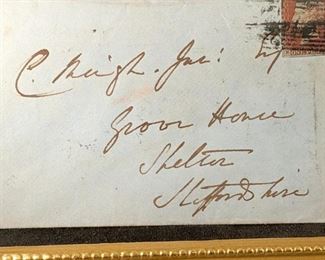 C. Meigh. Jun: Esq
Grove House
Shelton
Staffordshire